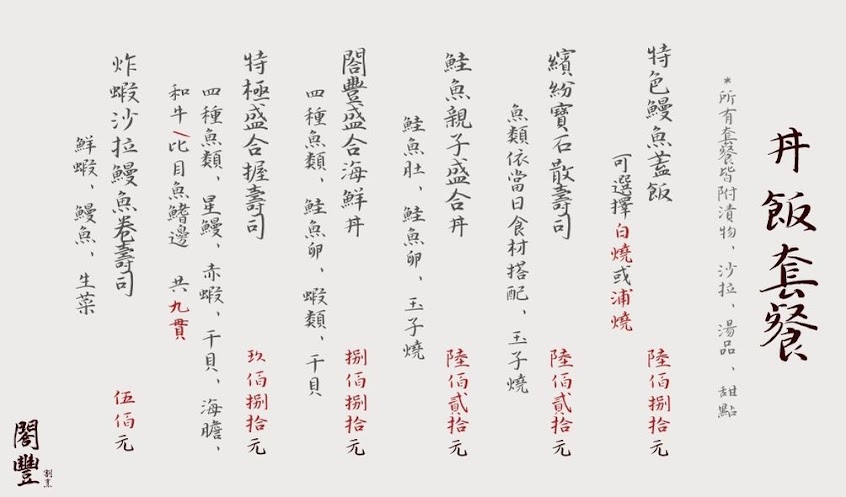 丼飯套餐
*所有套餐皆附漬物、沙拉、湯品、甜點
特色鰻魚蓋飯 陸佰捌拾元
可選擇白燒或浦燒
繽紛寶石散壽司 陸佰貳拾元
魚類依當日食材搭配、玉子燒
鮭魚親子盛合丼 陸佰貳拾元
鮭魚肚、鮭魚卵、玉子燒
閤豐盛合海鮮丼 捌佰捌拾元
四種魚類、鮭魚卵、蝦類、干貝
特極盛合握壽司 玖佰捌拾元
四種魚類、星鰻、赤蝦、干貝、海膽、
和牛/比目魚鰭邊 共九貫
炸蝦沙拉鰻魚卷壽司 伍佰元
鮮蝦、鰻魚、生菜
閤豐
割烹